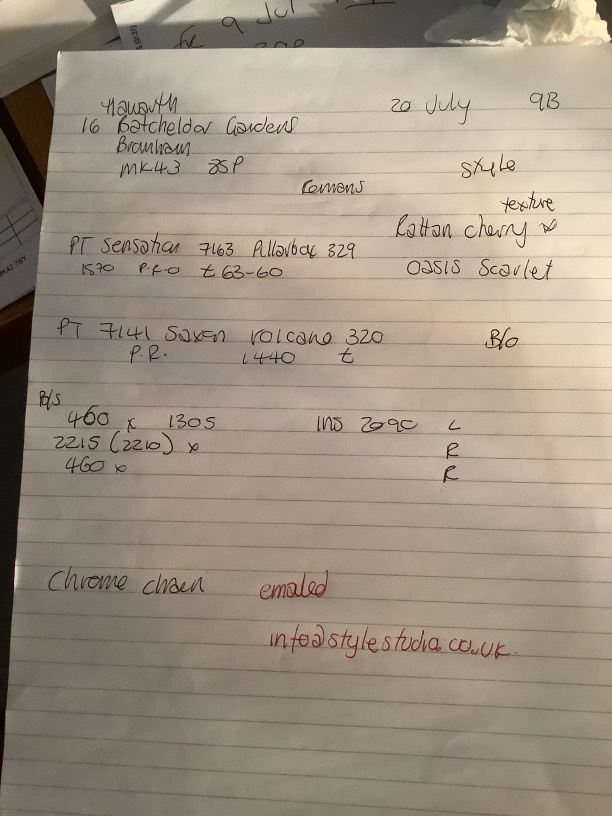 9 Jul
Haworth
20 July
9B
16 Batcheldor Gardens
Bromham
MK43 8SP
style
Remans
texture
Rattan cherry
PT Sensation 7163 Pillarbox 329
1570 P.F.O t 63-60
OASIS Scarlet
PT 7141 Saxen Volcano 320
B/O
P.R. 1440 t
B/S
460 x 1305 INS 2090 L
2215 (2210) x R
460 x R
Chrome chaen emaled
info@stylestudia.co.uk.
MK42 7BY